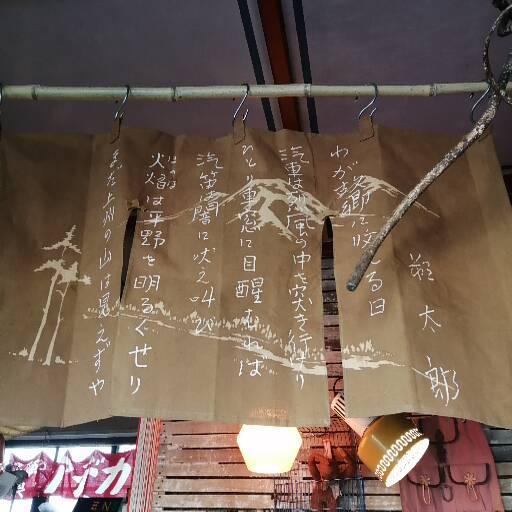 朔太郎
わが故郷に帰れる日
汽車は烈風の中を突き行けり
ひとり車窓に目醒むれば
汽笛は闇に吠え叫び
火焔は平野を明るくせり
まだ上州の山は見えずや